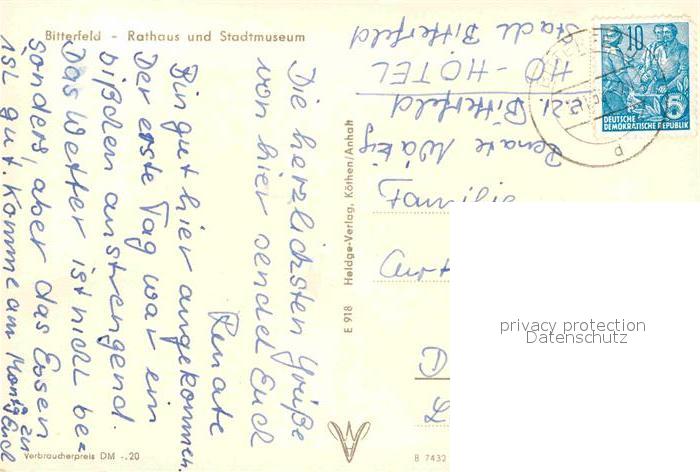 Bitterfeld - Rathaus und Stadtmuseum
Die herzlichsten Grüße
von hier sendet Euch
Renate
Bin gut hier angekommen.
Der erste Tag war ein
bißchen anstrengend.
Das Wetter ist nicht be=
sonders, aber das Essen
ist gut. Komme am Montag zu
Euch
Verbraucherpreis DM -.20
E 918 Heldge-Verlag, Köthen/Anhalt
B 7432
Renate
z. Z. Bitterfeld
HO-HOTEL
Stadt Bitterfeld
10
5
DEUTSCHE
DEMOKRATISCHE REPUBLIK
d
privacy protection
Datenschutz